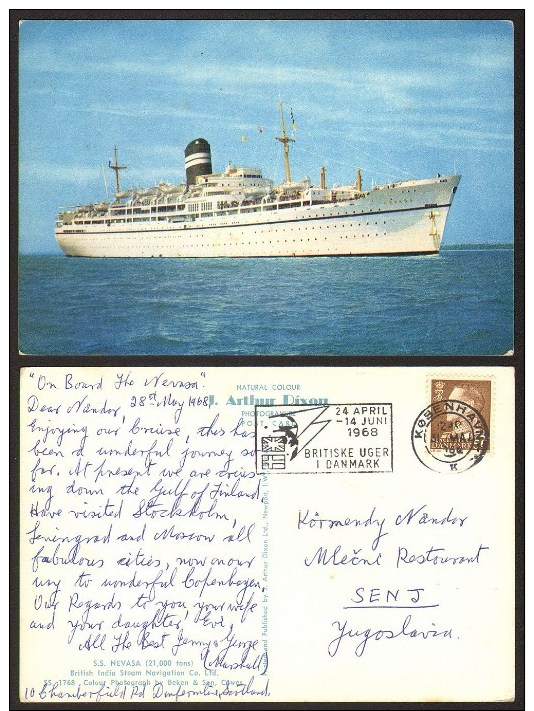 "On Board The Nevasa".
28st May 1968
Dear Nandor,
Enjoying our Cruise, this has
been a wonderful journey so
far. At present we are
ing down the Gulf of Finland
Have visited Stockholm,
Leningrad and Moscow all
fabulous cities, now on our
way to wonderful Copenhagen
Our Regards to you your wife
and your daughter, Evi.
All The Best Jenny & George
(Marshall)
10 Chamberfield Rd Dunfermline, Scotland.
S.S. NEVASA (21,000 tons)
British India Steam Navigation Co. Ltd.
SS.1768 Colour Photograph by Beken & Son, Cowes
NATURAL COLOUR
J. Arthur Dixon
PHOTOGRAPHIC
POST CARD
and Published by J. Arthur Dixon Ltd., Newport, I.W.
24 APRIL
-14 JUNI
1968
BRITISKE UGER
I DANMARK
KØBENHAVN
MAJ
K
DANMARK
Körmendy Nándor
Mlečni Restourant
SENJ
Yugoslavia.